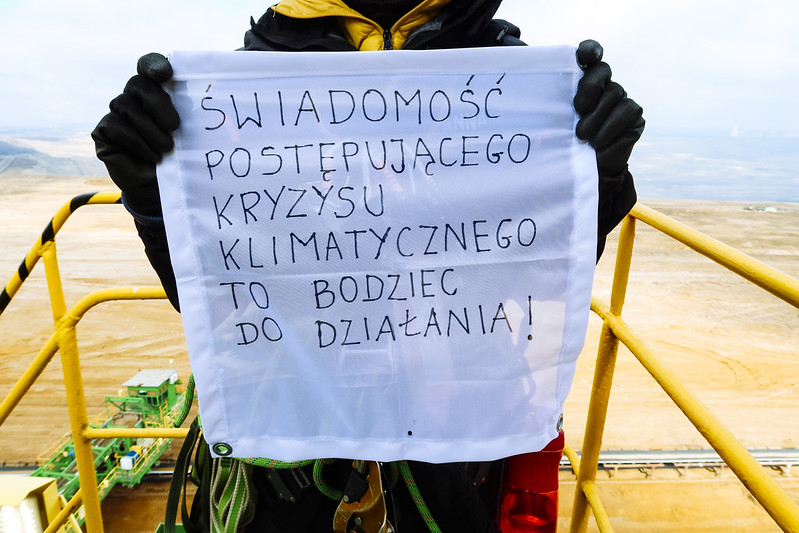 ŚWIADOMOŚĆ
POSTĘPUJĄCEGO
KRYZYSU
KLIMATYCZNEGO
TO BODZIEC
DO DZIAŁANIA!